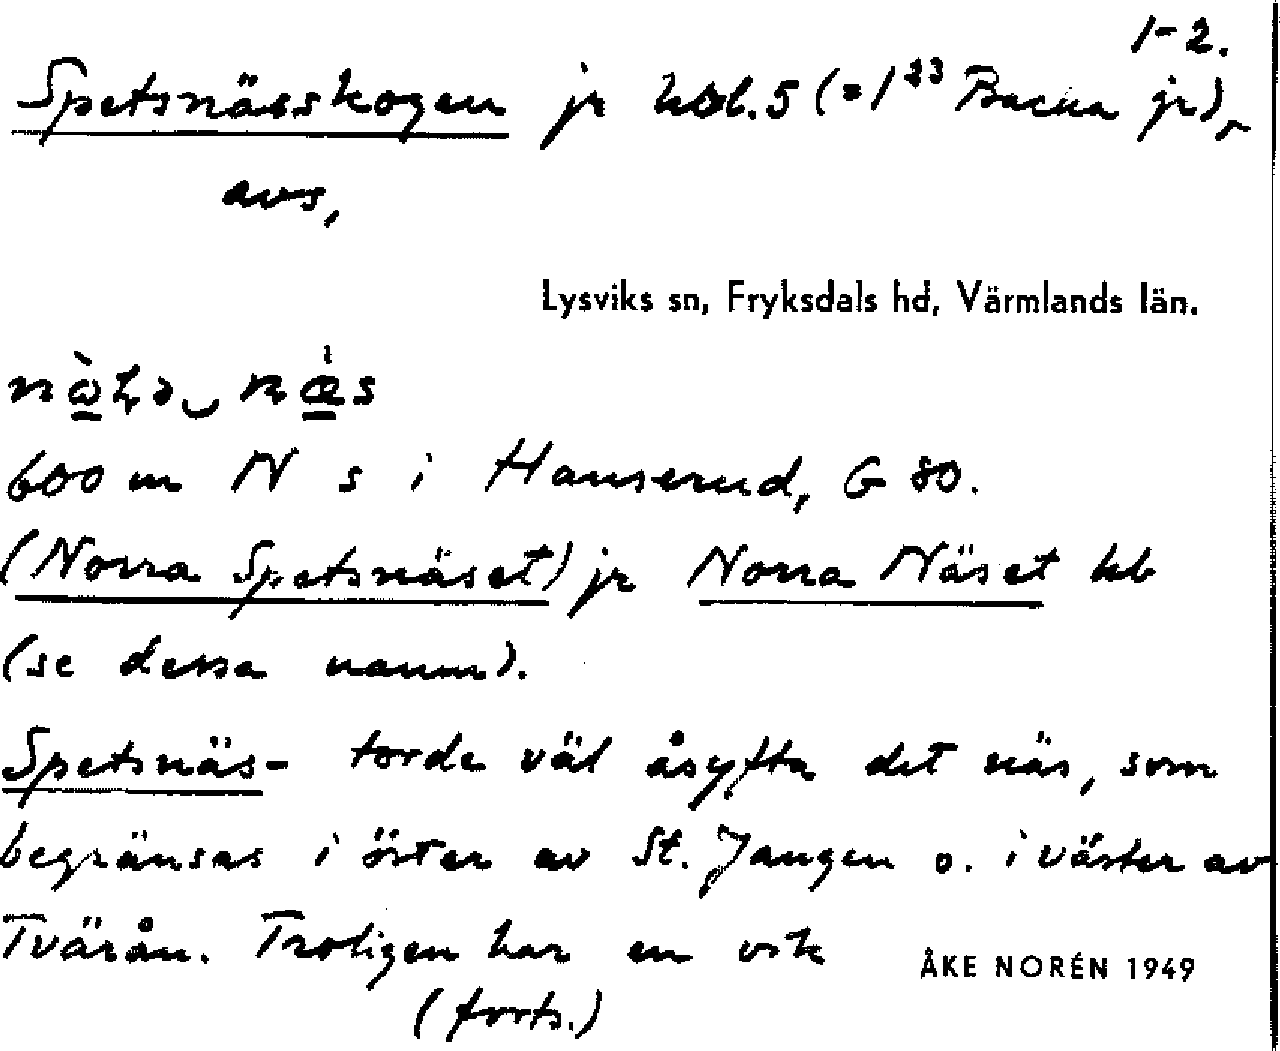 1-2.
Spetsnässkogen jr kbl. 5 (= 1²³ Backa jr),
avs,
Lysviks sn, Fryksdals hd, Värmlands län.
600 m N s i Hanserud, G 80.
(Norra Spetsnäset) jr Norra Näset hb
(se dessa namn).
Spetsnäs- torde väl åsyfta det näs, som
begränsas i öster av St. Jangen o. i väster av
Tvärån. Troligen har en vik
ÅKE NORÉN 1949
(forts.)